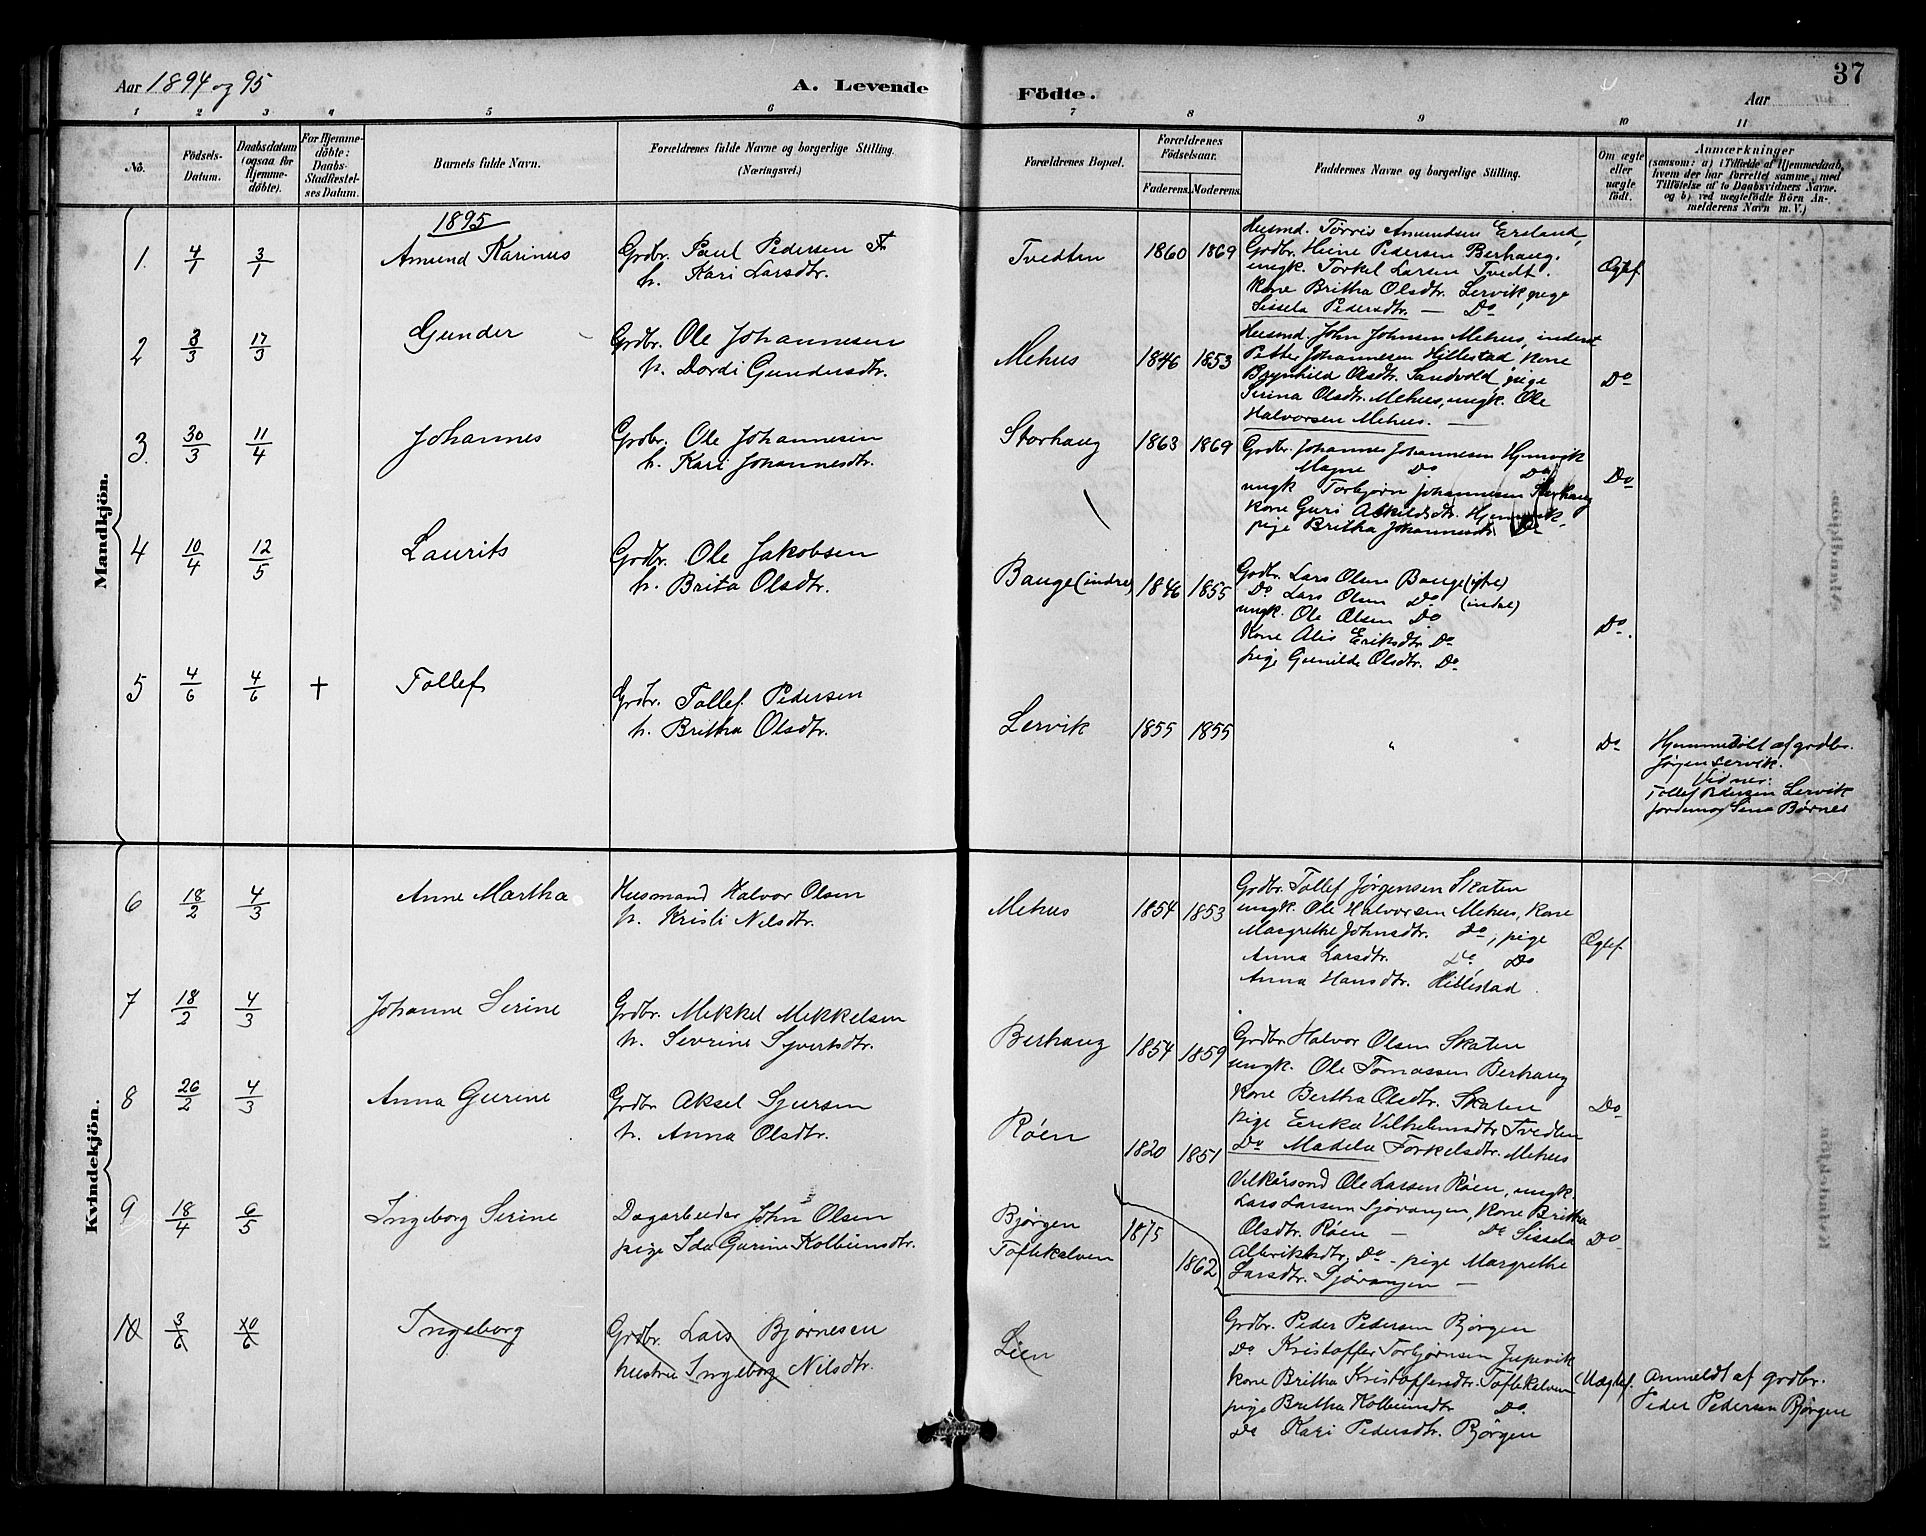 Aar 1894 og 95
A. Levende
Födte.
37
Aar
1 2 3 4 5 6 7 8 9 10 11
No.
Födsels-Datum.
Daabsdatum (ogsaa for Hjemme-döbte).
For Hjemme-döbte: Daabs-Stadfæstel-ses Datum.
Barnets fulde Navn.
Forældrenes fulde Navne og borgerlige Stilling. (Næringsvei.)
Forældrenes Bopæl.
Forældrenes Födselsaar.
Faderens. Moderens.
Faddernes Navne og borgerlige Stilling.
Om ægte eller uægte födt.
Anmærkninger
(saasom: a) i Tilfælde af Hjemmedaab, hvem der har forrettet samme, med Tilföielse af to Daabsvidners Navne. og b) ved uægtefödte Börn An-melderens Navn m. V.)
Mandkjön.
1895
1. 4/1 3/1 Amund Karinus
Grdbr. Paul Pedersen
h. Kari Larsdtr.
Tvedten 1860 1869
Husmd. Tørris Amundsen Ersland,
Grdbr. Heine Pedersen Berhaug,
ungk. Torkel Larsen Tvedt.
Kone Britha Olsdtr. Lervik, pige
Sissela Pedersdtr. — Do
Ægtef.
2 3/3 17/3 Gunder
Grdbr. Ole Johannesen
h. Dordi Gundersdtr.
Mehus 1846 1853
Husmd. John Johnsen Mehus, inderst
Petter Johannesen Hillestad, kone
Brynhild Olsdtr. Sandvold, pige
Serina Olsdtr. Mehus, ungk. Ole
Halvorsen Mehus. —
Do
3. 30/3 11/4 Johannes
Grdbr. Ole Johannesen
h. Kari Johannesdtr.
Storhaug 1863 1869
Grdbr. Johannes Johannesen Hjemvik
Magne Do Do
ungk Torbjørn Johannesen Storhaug
Kone Guri Askildsdtr. Hjemvik.
pige Britha Johannesdtr. Do
Do
4 10/4 12/5 Laurits
Grdbr. Ole Jakobsen
h. Brita Olsdtr.
Bauge (indre) 1846 1855
Grdbr. Lars Olsen Bauge (ytre)
Do Lars Olsen Do (indre)
ungk. Ole Olsen Do
Kone Alis Eriksdtr. Do
pige Gunilde Olsdtr. Do
Do.
5 4/6 4/6 + Tollef
Grdbr. Tollef Pedersen
h. Britha Olsdtr.
Lervik 1855 1855
"
Do
Hjemmedöbt af grdbr.
Jørgen Lervik.
Vidner:
Tollef Pedersen Lervik
Jordemor Sina Børnes
Kvindekjön.
6 18/2 4/3 Anne Martha
Husmand Halvor Olsen
h. Kristi Nilsdtr.
Mehus 1854 1853
Grdbr. Tollef Jørgensen Skaten
ungk. Ole Halvorsen Mehus, Kone
Margrethe Johnsdtr. Do, pige
Anna Larsdtr. Do Do
Anna Hansdtr. Hillestad.
Ægtef.
7 18/2 4/3 Johanne Serine
Grdbr. Mekkel Mekkelsen
h. Sevrine Syvertsdtr.
Berhaug 1854 1859
Grdbr. Halvor Olsen Skaten
ungk. Ole Tomassen Berhaug
Kone Bertha Olsdtr. Skaten
pige Erika Vilhelmsdtr Tvedten
Do Madela Torkelsdtr. Mehus
Do
8 26/2 4/3 Anna Gurine
Grdbr Aksel Sjursen
h. Anna Olsdtr.
Røen 1820 1851
Vilkårsmd Ole Larsen Røen, ungk.
Lars Larsen Sjøvangen, Kone Britha
Olsdtr. Røen — Do Sissela
Albrikksdtr, Do - pige Margrethe
Larsdtr. Sjøvangen —
Do
9 18/4 6/5 Ingeborg Serine
Dagarbeider John Olsen
pige Ida Gurine Kolbeinsdtr.
Bjørgen
Toftekalven
1875
1862
Grdbr. Peder Pedersen Bjørgen
Do Kristoffer Torbjørnsen Jupevik
Kone Britha Kristoffersdtr. Toftekalven
pige Britha Kolbeinsdtr Do.
Do Kari Pedersdtr. Bjørgen
Uægtef.
Anmeldt af grdbr.
Peder Pedersen Bjørgen
10 3/6 10/6 Ingeborg
Grdbr. Lars Bjørnesen
hustru Ingeborg Nilsdtr.
Lien